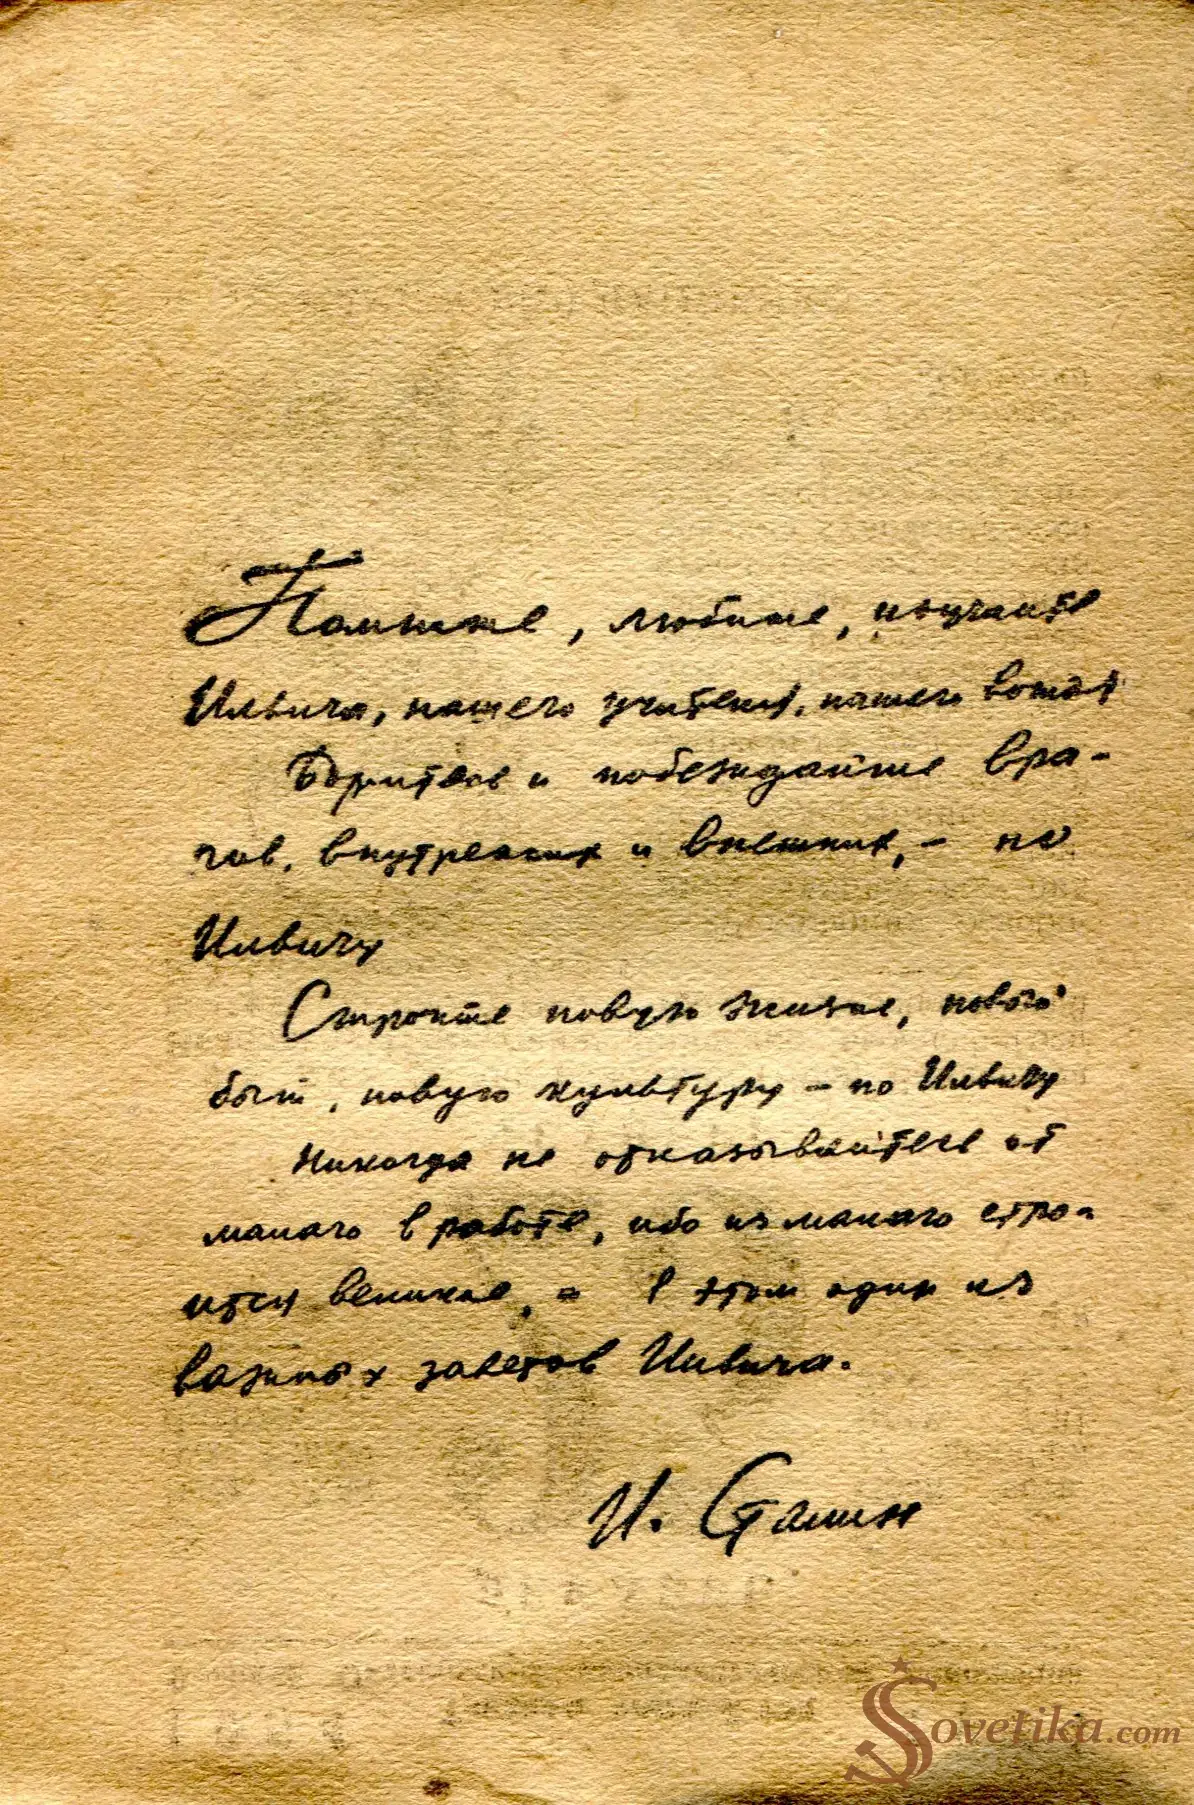 Помните, любите, изучайте
Ильича, нашего учителя, нашего вождя
Боритесь и побеждайте вра-
гов, внутренних и внешних, – по
Ильичу
Стройте новую жизнь, новый
быт, новую культуру – по Ильичу
Никогда не отказывайтесь от
малого в работе, ибо из малого стро-
ится великое, – в этом один из
важных заветов Ильича.
И. Сталин
Sovetika.com